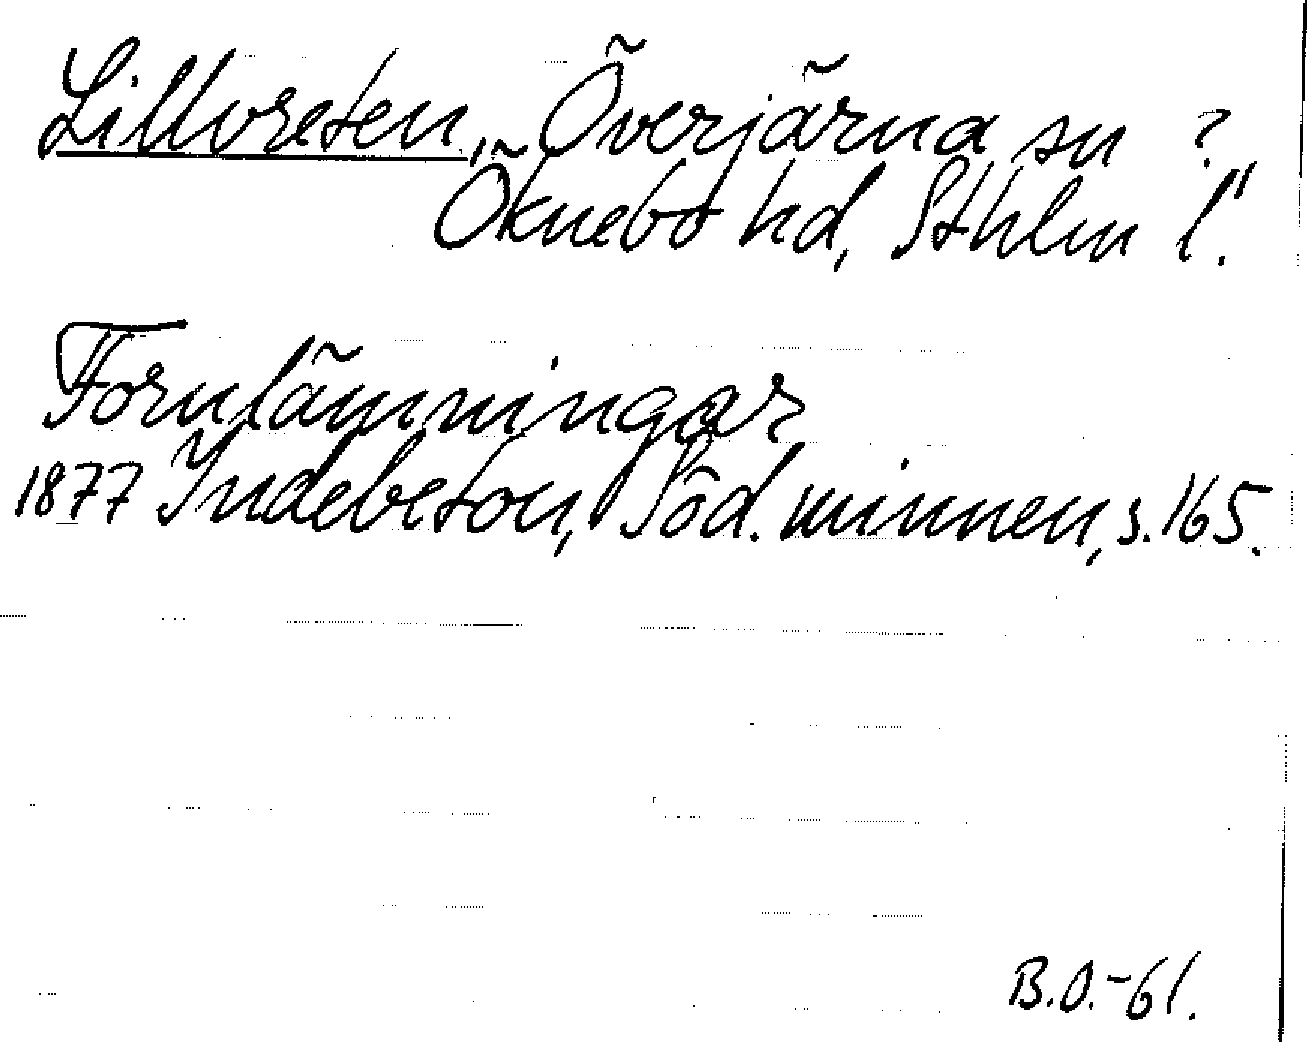 Lillvreten, Överjärna sn ?
Öknebo hd, Sthlm l."
Fornlämningar
1877 Indebetou, Söd. minnen, s. 165.
B.O.-61.